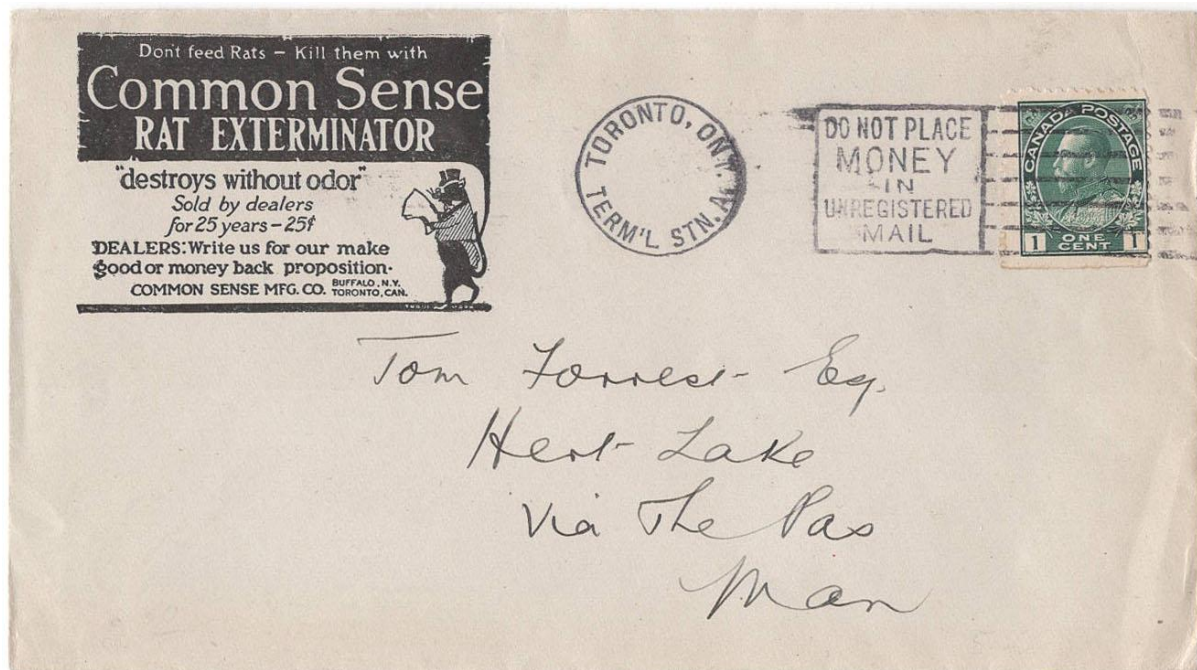 Don't feed Rats – Kill them with
Common Sense
RAT EXTERMINATOR
"destroys without odor"
Sold by dealers
for 25 years – 25¢
DEALERS: Write us for our make
good or money back proposition.
COMMON SENSE MFG. CO. BUFFALO, N.Y.
TORONTO, CAN.
TORONTO, ONT.
TERM'L STN. A
DO NOT PLACE
MONEY
IN
UNREGISTERED
MAIL
CANADA POSTAGE
1 ONE CENT 1
Tom Forrest Esq.
Lake
Via The Pas
Man